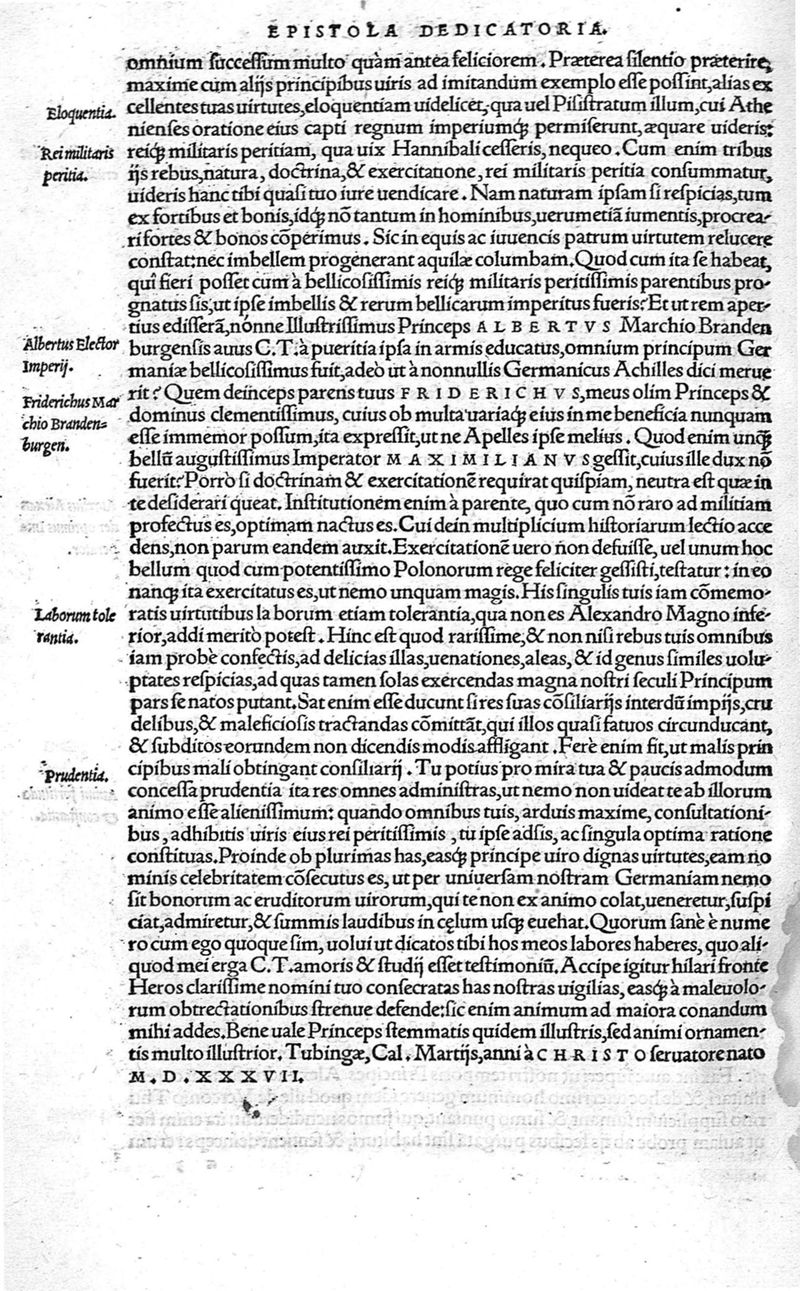 EPISTOLA DEDICATORIA.
omnium successum multo quàm antea feliciorem. Præterea silentio præterire,
maxime cum alijs principibus uiris ad imitandum exemplo esse possint, alias ex
Eloquentia.
cellentes tuas uirtutes, eloquentiam uidelicet, qua uel Pisistratum illum, cui Athe
nienses oratione eius capti regnum imperiumq́; permiserunt, æquare uideris:
Rei militaris
reiq́; militaris peritiam, qua uix Hannibali cesseris, nequeo. Cum enim tribus
peritia.
ijs rebus, natura, doctrina, & exercitatione, rei militaris peritia consummatur,
uideris hanc tibi quasi tuo iure uendicare. Nam naturam ipsam si respicias, tum
ex fortibus et bonis, idq́; nō tantum in hominibus, uerum etiā iumentis, procrea-
ri fortes & bonos cōperimus. Sic in equis ac iuuencis patrum uirtutem relucere
constat: nec imbellem progenerant aquilæ columbam. Quod cum ita se habeat,
quî fieri posset cum à bellicosissimis reiq́; militaris peritissimis parentibus pro-
gnatus sis, ut ipse imbellis & rerum bellicarum imperitus fueris? Et ut rem aper-
tius edisserā, nónne Illustrissimus Princeps ALBERTVS Marchio Branden
Albertus Elector
Imperij.
burgensis auus C. T. à pueritia ipsa in armis educatus, omnium principum Ger
maniæ bellicosissimus fuit, adeò ut à nonnullis Germanicus Achilles dici merue
Friderichus Mar
chio Branden=
burgen.
rit? Quem deinceps parens tuus FRIDERICHVS, meus olim Princeps &
dominus clementissimus, cuius ob multa uariaq́; eius in me beneficia nunquam
esse immemor possum, ita expressit, ut ne Apelles ipse melius. Quod enim unq̃
bellū augustissimus Imperator MAXIMILIANVS gessit, cuius ille dux nō
fuerit? Porrò si doctrinam & exercitationē requirat quispiam, neutra est quæ in
te desiderari queat. Institutionem enim à parente, quo cum nō raro ad militiam
profectus es, optimam nactus es. Cui dein multiplicium historiarum lectio acce
dens, non parum eandem auxit. Exercitationē uero non defuisse, uel unum hoc
bellum quod cum potentissimo Polonorum rege feliciter gessisti, testatur: in eo
nanq́; ita exercitatus es, ut nemo unquam magis. His singulis tuis iam cōmemo-
Laborum tole
rantia.
ratis uirtutibus laborum etiam tolerantia, qua non es Alexandro Magno infe-
rior, addi meritò potest. Hinc est quod rarissime, & non nisi rebus tuis omnibus
iam probè confectis, ad delicias illas, uenationes, aleas, & id genus similes uolu-
ptates respicias, ad quas tamen solas exercendas magna nostri seculi Principum
pars se natos putant. Sat enim esse ducunt si res suas cōsiliarijs interdū impijs, cru
delibus, & maleficiosis tractandas cōmittāt, qui illos quasi fatuos circunducant,
& subditos eorundem non dicendis modis affligant. Ferè enim fit, ut malis prin
Prudentia.
cipibus mali obtingant consiliarij. Tu potius pro mira tua & paucis admodum
concessa prudentia ita res omnes administras, ut nemo non uideat te ab illorum
animo esse alienissimum: quando omnibus tuis, arduis maxime, consultationi-
bus, adhibitis uiris eius rei peritissimis, tu ipse adsis, ac singula optima ratione
constituas. Proinde ob plurimas has, easq́; principe uiro dignas uirtutes, eam no
minis celebritatem cōsecutus es, ut per uniuersam nostram Germaniam nemo
sit bonorum ac eruditorum uirorum, qui te non ex animo colat, ueneretur, suspi
ciat, admiretur, & summis laudibus in cęlum usq́; euehat. Quorum sanè è nume
ro cum ego quoque sim, uolui ut dicatos tibi hos meos labores haberes, quo ali-
quod mei erga C. T. amoris & studij esset testimoniū. Accipe igitur hilari fronte
Heros clarissime nomini tuo consecratas has nostras uigilias, easq́; à maleuolo-
rum obtrectationibus strenue defende: sic enim animum ad maiora conandum
mihi addes. Bene uale Princeps stemmatis quidem illustris, sed animi ornamen-
tis multo illustrior. Tubingæ, Cal. Martijs, anni à CHRISTO seruatore nato
M. D. XXXVII.